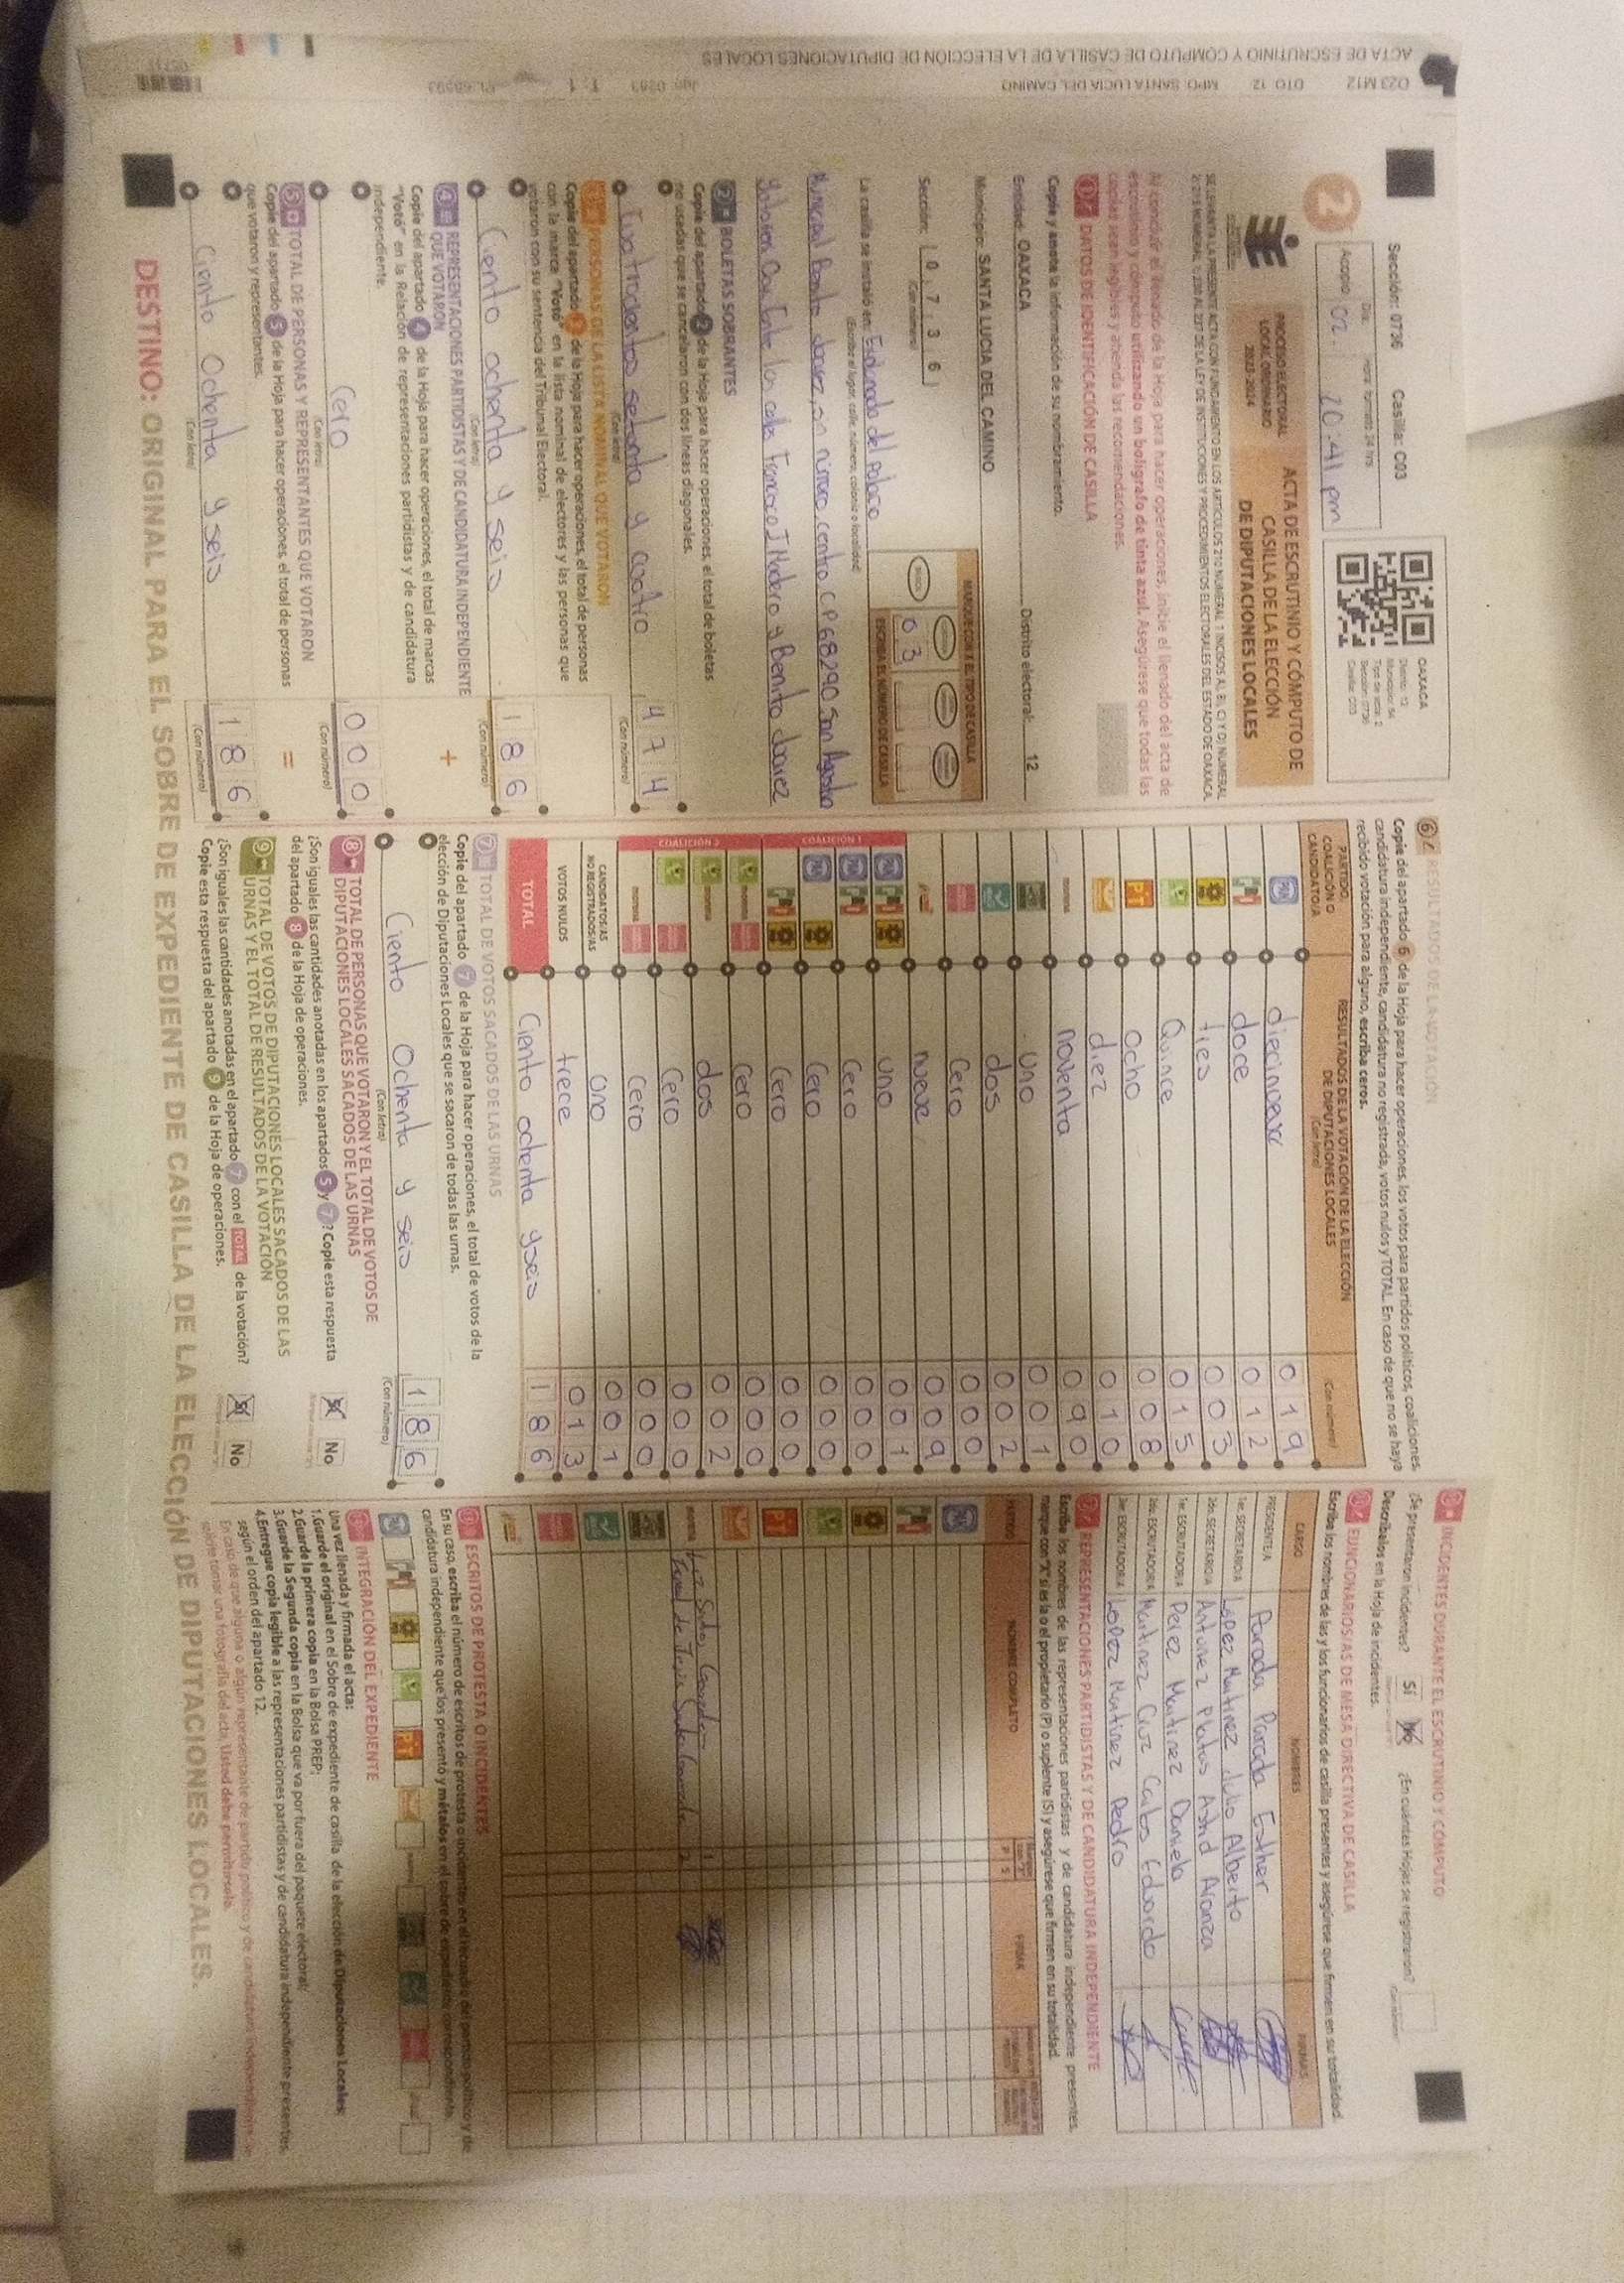 ACTA DE ESCRUTINIO Y CÓMPUTO DE CASILLA DE LA ELECCIÓN DE DIPUTACIONES LOCALES
023 M12 DTO 12 MPO: SANTA LUCIA DEL CAMINO
Sección: 0736 Casilla: C03
2
Acopio 02. 20:41 pm
OAXACA
PROCESO ELECTORAL
LOCAL ORDINARIO
2023-2024
ACTA DE ESCRUTINIO Y CÓMPUTO DE
CASILLA DE LA ELECCIÓN
DE DIPUTACIONES LOCALES
Al concluir el llenado de la Hoja para hacer operaciones, inicie el llenado del acta de
escrutinio y cómputo utilizando un bolígrafo de tinta azul. Asegúrese que todas las
copias sean legibles y atienda las recomendaciones.
1 DATOS DE IDENTIFICACIÓN DE CASILLA
Copie y anote la información de su nombramiento.
Entidad: OAXACA Distrito electoral: 12
Municipio: SANTA LUCIA DEL CAMINO
Sección: 0 7 3 6
(Con número)
MARQUE CON X EL TIPO DE CASILLA
ESCRIBA EL NÚMERO DE CASILLA
0 3
La casilla se instaló en: Explanada del Palacio
(Escriba el lugar, calle, número, colonia o localidad)
Municipal Benito Juarez, sin número, centro, C P 68290 San Agustin
Yatareni Oax. Entre las calles Francisco I Madero y Benito Juarez
2 BOLETAS SOBRANTES
Copie del apartado 2 de la Hoja para hacer operaciones, el total de boletas
no usadas que se cancelaron con dos líneas diagonales.
Cuatrocientos setenta y cuatro 4 7 4
(Con letra) (Con número)
3 PERSONAS DE LA LISTA NOMINAL QUE VOTARON
Copie del apartado 3 de la Hoja para hacer operaciones, el total de personas
con la marca "Votó" en la lista nominal de electores y las personas que
votaron con su sentencia del Tribunal Electoral.
Ciento ochenta y seis 1 8 6
(Con letra) (Con número)
4 REPRESENTACIONES PARTIDISTAS Y DE CANDIDATURA INDEPENDIENTE
QUE VOTARON
Copie del apartado 4 de la Hoja para hacer operaciones, el total de marcas
"Votó" en la Relación de representaciones partidistas y de candidatura
independiente.
Cero 0 0 0
(Con letra) (Con número)
5 TOTAL DE PERSONAS Y REPRESENTANTES QUE VOTARON
Copie del apartado 5 de la Hoja para hacer operaciones, el total de personas
que votaron y representantes.
Ciento Ochenta y seis 1 8 6
(Con letra) (Con número)
6 RESULTADOS DE LA VOTACIÓN
Copie del apartado 6 de la Hoja para hacer operaciones, los votos para partidos políticos, coaliciones,
candidatura independiente, candidatura no registrada, votos nulos y TOTAL. En caso de que no se haya
recibido votación para alguno, escriba ceros.
PARTIDO, COALICIÓN O CANDIDATO/A
RESULTADOS DE LA VOTACIÓN DE LA ELECCIÓN
DE DIPUTACIONES LOCALES
(Con letra) (Con número)
PAN diecinueve 0 1 9
PRI doce 0 1 2
tres 0 0 3
Quince 0 1 5
PT Ocho 0 0 8
diez 0 1 0
morena noventa 0 9 0
uno 0 0 1
dos 0 0 2
Cero 0 0 0
nueve 0 0 9
COALICIÓN 1
uno 0 0 1
Cero 0 0 0
Cero 0 0 0
Cero 0 0 0
COALICIÓN 2
Cero 0 0 0
dos 0 0 2
Cero 0 0 0
Cero 0 0 0
CANDIDATOS/AS NO REGISTRADOS/AS uno 0 0 1
VOTOS NULOS trece 0 1 3
TOTAL Ciento ochenta y seis 1 8 6
7 TOTAL DE VOTOS SACADOS DE LAS URNAS
Copie del apartado 7 de la Hoja para hacer operaciones, el total de votos de la
elección de Diputaciones Locales que se sacaron de todas las urnas.
Ciento Ochenta y seis 1 8 6
(Con letra) (Con número)
8 TOTAL DE PERSONAS QUE VOTARON Y EL TOTAL DE VOTOS DE
DIPUTACIONES LOCALES SACADOS DE LAS URNAS
¿Son iguales las cantidades anotadas en los apartados 5 y 7? Copie esta respuesta
del apartado 8 de la Hoja de operaciones.
Sí No
9 TOTAL DE VOTOS DE DIPUTACIONES LOCALES SACADOS DE LAS
URNAS Y EL TOTAL DE RESULTADOS DE LA VOTACIÓN
¿Son iguales las cantidades anotadas en el apartado 7 con el TOTAL de la votación?
Copie esta respuesta del apartado 9 de la Hoja de operaciones.
Sí No
INCIDENTES DURANTE EL ESCRUTINIO Y CÓMPUTO
¿Se presentaron incidentes? Sí No ¿En cuántas Hojas se registraron?
Descríbalos en la Hoja de incidentes.
FUNCIONARIOS/AS DE MESA DIRECTIVA DE CASILLA
Escriba los nombres de las y los funcionarios de casilla presentes y asegúrese que firmen en su totalidad.
CARGO NOMBRES FIRMAS
PRESIDENTE/A Parada Parada Esther
1er. SECRETARIO/A Lopez Martinez Julio Alberto
2do. SECRETARIO/A Antunez Platas Astrid Aranza
1er. ESCRUTADOR/A Perez Martinez Daniela
2do. ESCRUTADOR/A Martinez Cruz Carlos Eduardo
3er. ESCRUTADOR/A Lopez Martinez Pedro
REPRESENTACIONES PARTIDISTAS Y DE CANDIDATURA INDEPENDIENTE
Escriba los nombres de las representaciones partidistas y de candidatura independiente presentes,
marque con "X" si es la o el propietario (P) o suplente (S) y asegúrese que firmen en su totalidad.
PARTIDO NOMBRE COMPLETO P S FIRMA
ESCRITOS DE PROTESTA O INCIDENTES
En su caso, escriba el número de escritos de protesta o incidentes en el recuadro del partido político y de
candidatura independiente que los presentó y métalos en el sobre de expediente correspondiente.
INTEGRACIÓN DEL EXPEDIENTE
Una vez llenada y firmada el acta:
1. Guarde el original en el Sobre de expediente de casilla de la elección de Diputaciones Locales;
2. Guarde la primera copia en la Bolsa PREP;
3. Guarde la Segunda copia en la Bolsa que va por fuera del paquete electoral;
4. Entregue copia legible a las representaciones partidistas y de candidatura independiente presentes,
según el orden del apartado 12.
DESTINO: ORIGINAL PARA EL SOBRE DE EXPEDIENTE DE CASILLA DE LA ELECCIÓN DE DIPUTACIONES LOCALES.